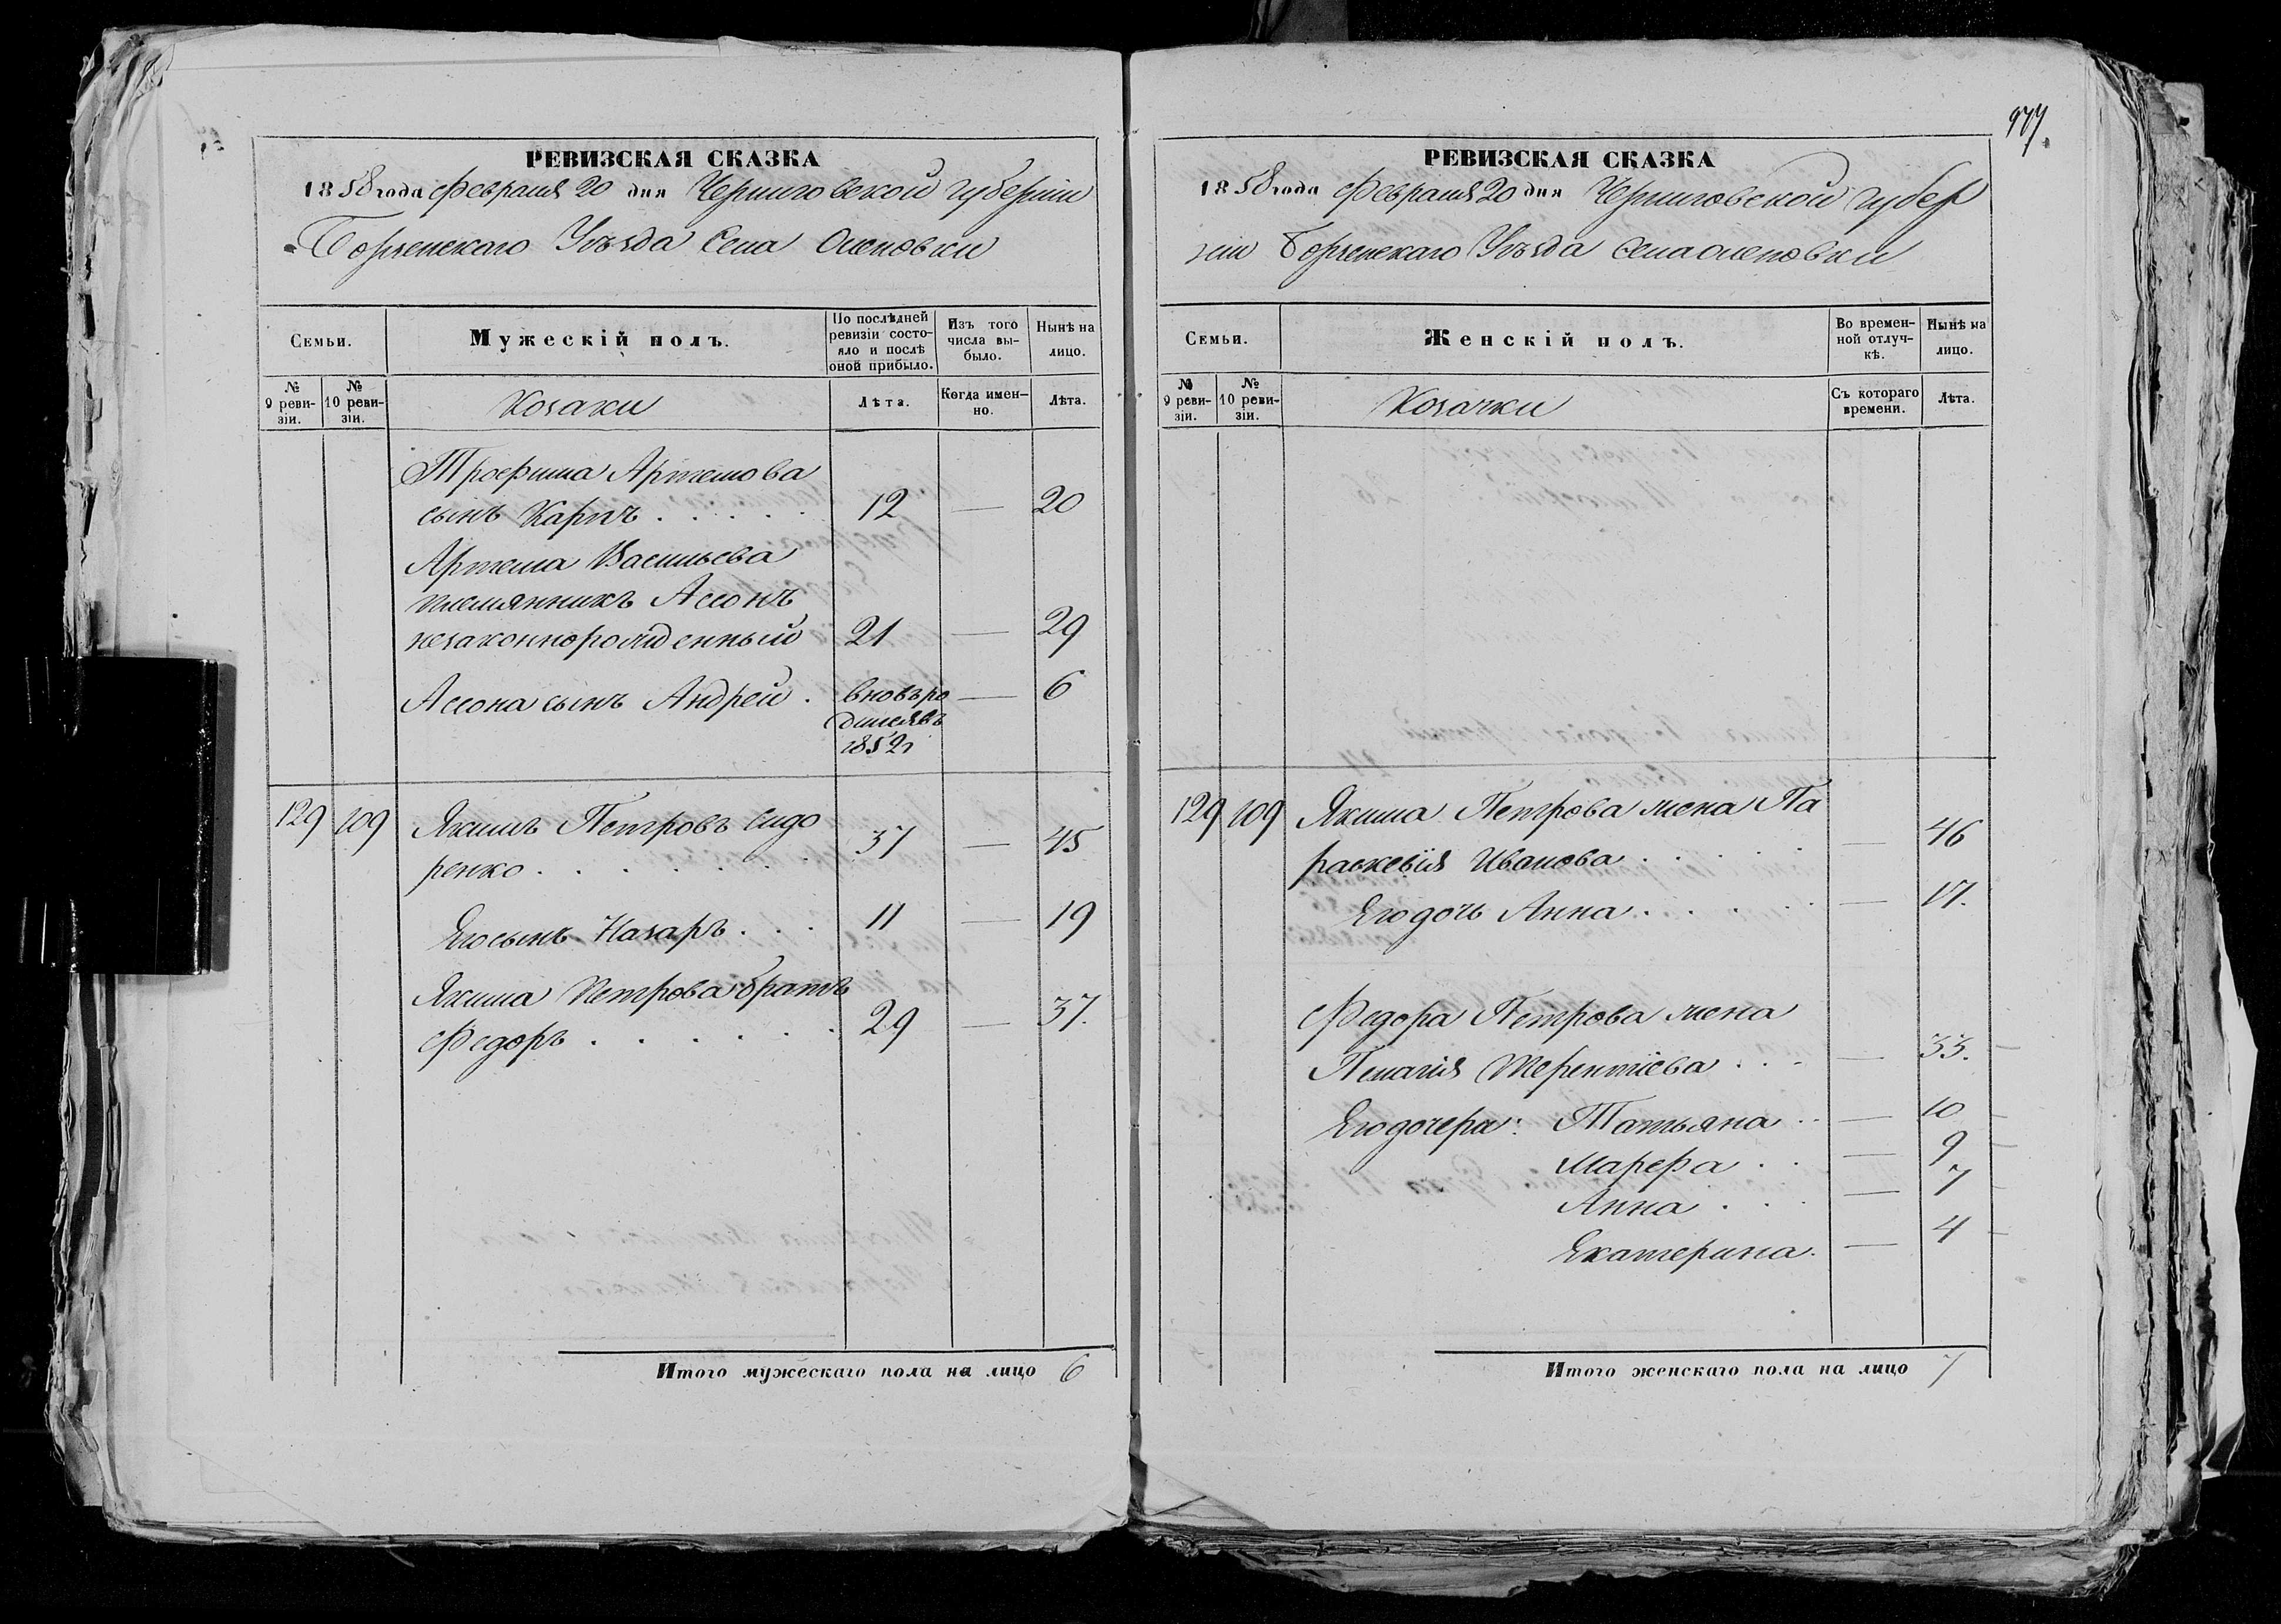 977.
РЕВИЗСКАЯ СКАЗКА
1858 года Февраля 20 дня Черниговской губерніи
Борзенскаго Уѣзда Села Оленовки
Семьи.
Мужескій полъ.
По послѣдней ревизіи состояло и послѣ оной прибыло.
Изъ того числа выбыло.
Нынѣ на лицо.
№ 9 ревизіи.
№ 10 ревизіи.
Козаки
Лѣта.
Когда именно.
Лѣта.
Трофима Артемова
сынъ Карпъ . . . . . 12 — 20
Артема Васильева
племянникъ Ассонъ
незаконнорожденный 21 — 29
Ассона сынъ Андрей . вновь ро — 6
дился въ
1852г
129 109 Якимъ Петровъ Сидо
ренко . . . . . . . 37 — 45
Его сынъ Назаръ . . . 11 — 19
Якима Петрова братъ
Федоръ . . . . . . 29 — 37.
Итого мужескаго пола на лицо 6
РЕВИЗСКАЯ СКАЗКА
1858 года Февраля 20 дня Черниговской губер
ніи Борзенскаго Уѣзда Села Оленовки
Семьи.
Женскій полъ.
Во временной отлучкѣ.
Нынѣ на лицо.
№ 9 ревизіи.
№ 10 ревизіи.
Козачки
Съ котораго времени.
Лѣта.
129 109 Якима Петрова жена Па
раскевія Иванова . . . . . — 46
Его дочь Анна . . . . . — 17.
Федора Петрова жена
Пелагія Терентіева . . . — 33.
Его дочери: Татьяна . . — 10
Марфа . . — 9
Анна . . . — 7
Екатерина. — 4
Итого женскаго пола на лицо 7